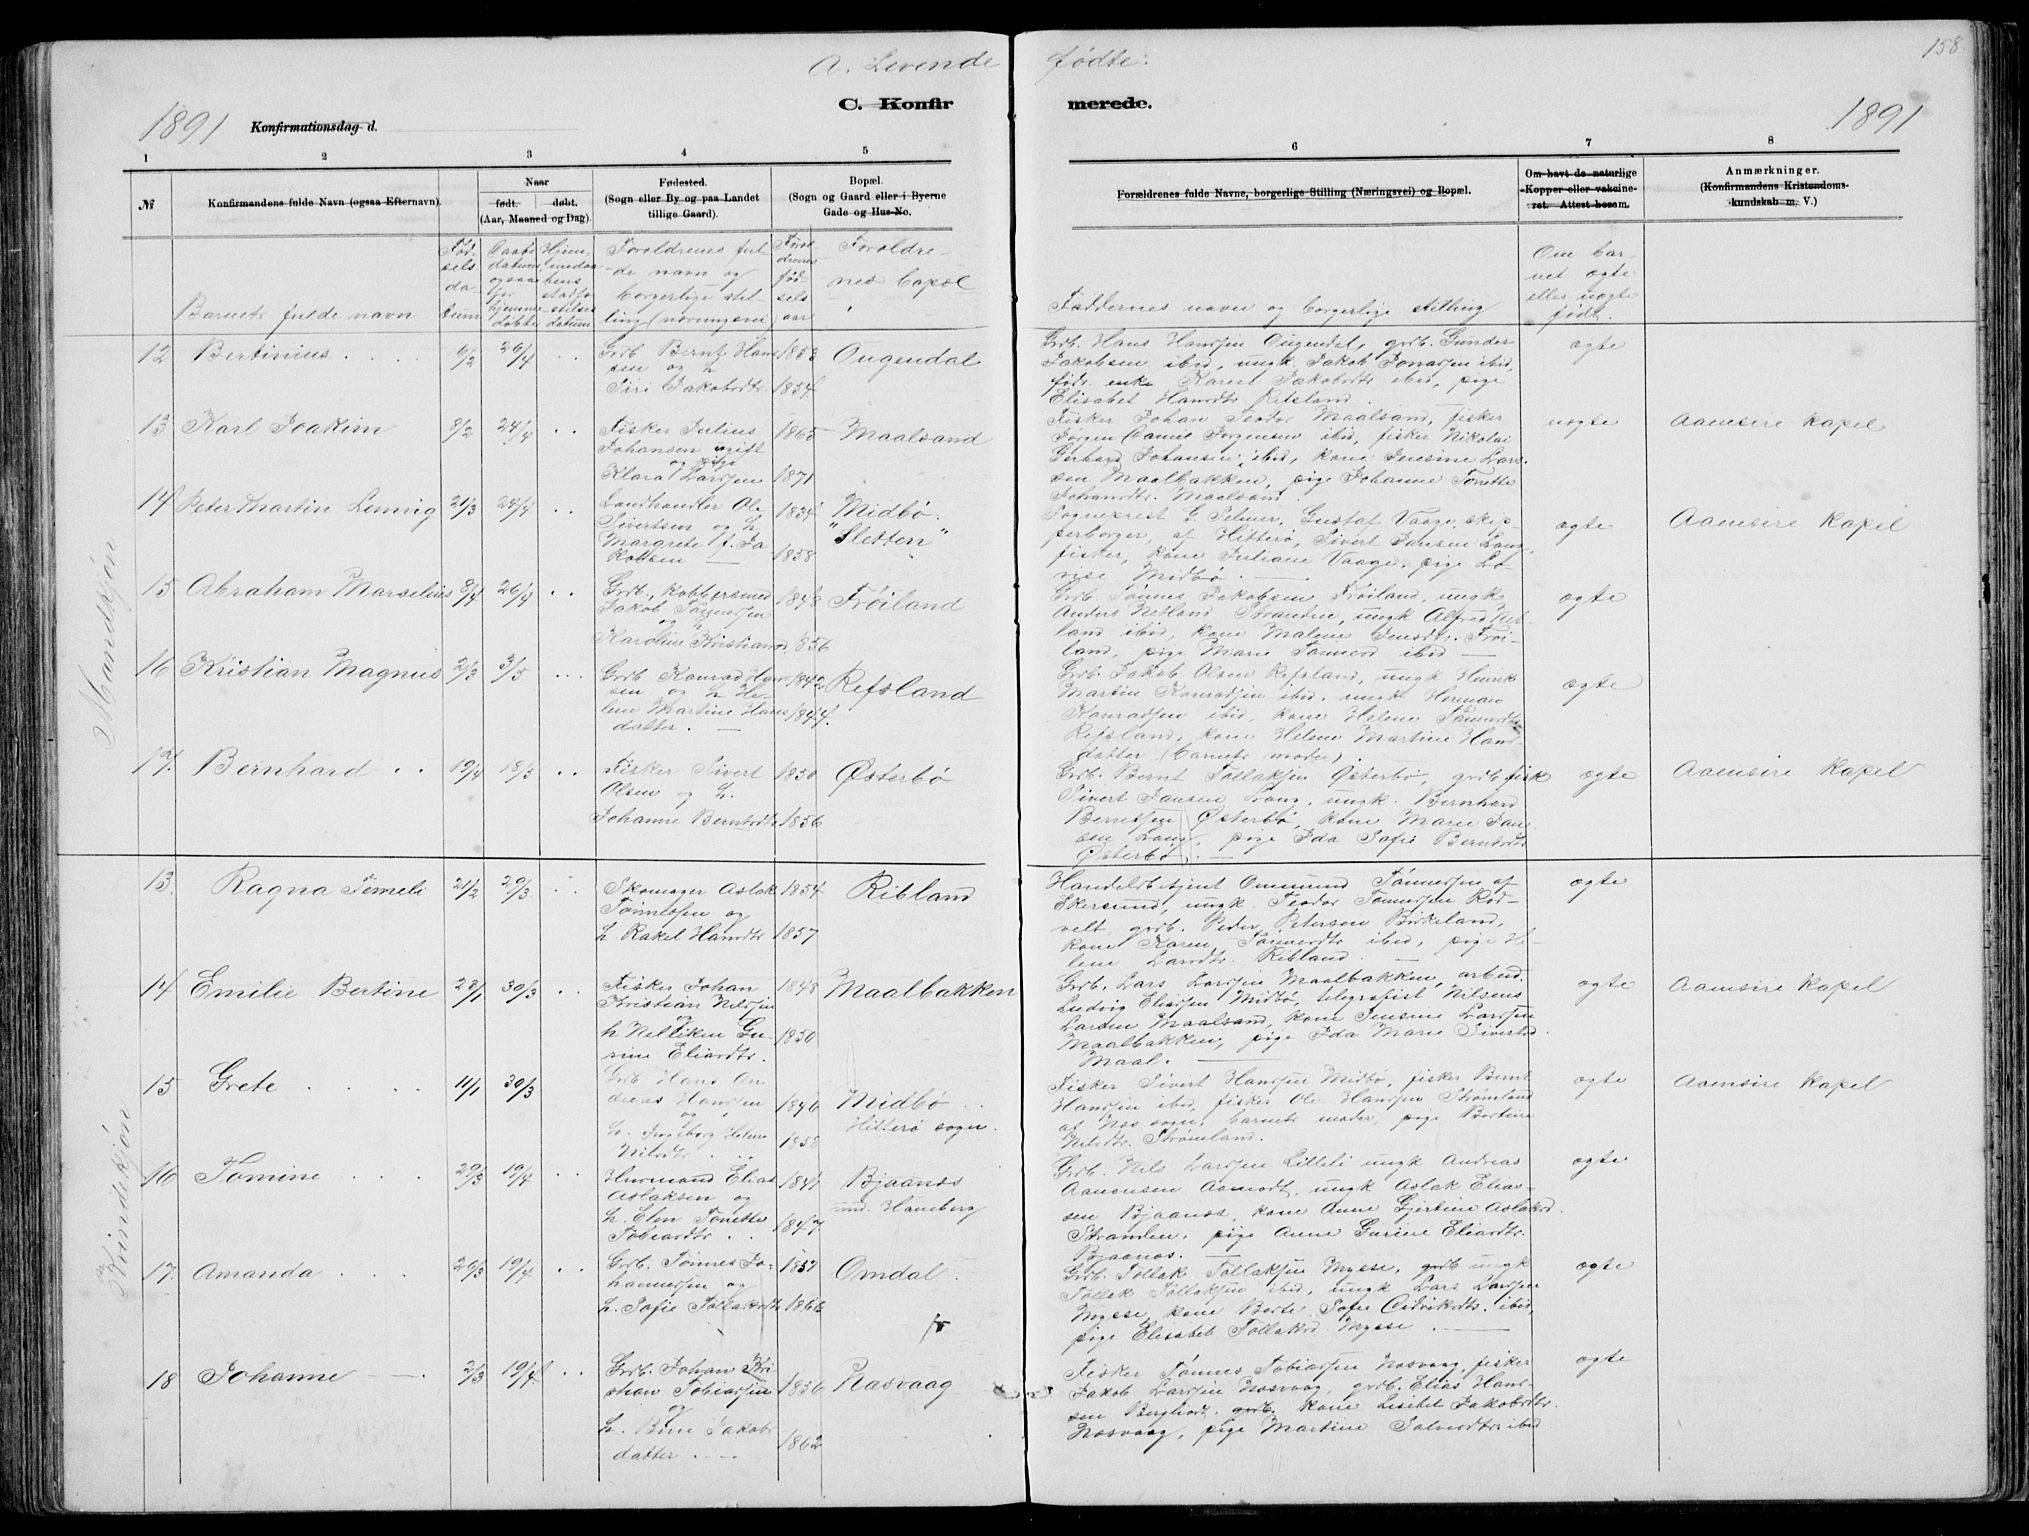 158.
A. Levende fødte:
C. Konfirmerede.
1891
Konfirmationsdag d.
1891
1 2 3 4 5 6 7 8
№
Konfirmandens fulde Navn (ogsaa Efternavn).
Naar
født. døbt.
(Aar, Maaned og Dag).
Fødested.
(Sogn eller By og paa Landet
tillige Gaard).
Bopæl.
(Sogn og Gaard eller i Byerne
Gade og Hus-No.
Forældrenes fulde Navne, borgerlige Stilling (Næringsvei) og Bopæl.
Om havt de naturlige
Kopper eller vakcine-
ret. Attest herom.
Anmærkninger.
(Konfirmandens Kristendoms-
kundskab m. V.)
Barnets fulde navn
Fød-
sels
da-
tum
Daabs
datum,
ogsaa
for
hjemme
døbte
Hjem-
medaa
bens
stadfæ
stelses
datum
Forældrenes ful-
de navn og
borgerlige stil-
ling (næringsvei
Foræl
drenes
fød-
sels
aar
Forældre-
nes bopæl
Faddernes navn og borgerlige stilling
Om bar-
net ægte
eller uægte
født.
Mandkjøn
12 Bertinius 6/2 26/4
Grb Bernt Han-
sen og h
Siri Jakobsdtr
1853
1854
Ougendal
Grb. Hans Hansen Ougendal, grb. Gunder
Jakobsen ibid, ungk. Jakob Jonassen ibid,
enke Karen Jakobsdtr ibid, pige
Elisabet Hansdtr Refsland.
ægte
13 Karl Joakim 8/2 24/4
Fisker Julius
Johansen ugift
og pige
Klara Larssen
1865
1871
Maalsand
Fisker Johan Teodor Maalsand, fisker
Jørgen Daniel Jørgensen ibid, fisker Nikolai
Gerhard Johansen ibid, kone Jensine Lars-
sen Maalbakken, pige Johanne Tonette
Johansdtr. Maalsand.
uægte
Aamsire Kapel
14 Peter Martin Lennig 21/3 24/4
Landhandler Ole
Sivertsen og h
Margrete f. Ja
kobsen
1834
1858
Midbø.
"Sletten"
Sogneprest G. Selmer, Gustaf Vaage, skip-
perborger, af Hitterø, Sivert Jansen Lang,
fisker, kone Juliane Vaage, pige Lo-
vise Midbø.
ægte
Aamsire Kapel
15 Abraham Marselius 8/4 26/4
Grb., Kobbersmed
Jakob Tønnessen
og
Karoline Kristiansd
1848
1856
Frøiland
Grb Tønnes Jakobsen Frøiland, ungk
Anders Netland Stranden, ungk Alfred Net-
land ibid, kone Malene Jensdtr. Frøi-
land, pige Marie Tønnesd ibid
ægte
16 Kristian Magnus 21/3 3/5
Grb Konrad Han
sen og h He-
lene Martine Hans
datter.
1842
1844.
Refsland
Grb. Jakob Olsen Refsland, ungk Henrik
Martin Konradsen ibid. ungk Herman
Konradsen ibid, kone Helene Tønnesdtr
Refsland, kone Helene Martine Hans
datter (barnets moder).
ægte
17. Bernhard 19/4 18/5
Fisker Sivert
Olsen og h.
Johanne Berntsdtr
1850
1856
Østerbø
Grb. Bernt Tollaksen Østerbø, grb fisk
Sivert Jansen Lang, ungk. Bernhard
Berntsen Østerbø, kone Marie Jan-
sen Lang, pige Ida Sofie Berntsdt
Østerbø.
ægte
Aamsire Kapel
Kvindekjøn
13. Ragna Tomeli 21/2 29/3
Skomager Aslak
Tønnesen og
h. Rakel Hansdtr
1854
1857
Ribland
Handelsbetjent Ommund Tønnesen af
Ekersund, ungk. Teodor Tønnesen Rød-
velt, grb. Peder Petersen Birkeland,
kone Karen Tønnesdtr ibid, pige He-
lene Larsdtr. Ribland.
ægte
14 Emilie Bertine 28/1 30/3
Fisker Johan
Kristian Nilssen
og
h Nelliken Gu-
rine Eliasdtr.
1848
1850
Maalbakken
Grb. Lars Larssen Maalbakken, arbeid.
Ludvig Eliassen Midbø, telegrafist Nilsens
Larsen Maalsand, kone Jensine Larssen
Maalbakken, pige Ida Marie Sivertsd
Maal.
ægte
Aamsire Kapel
15 Grete 11/1 30/3
Grb Hans An-
dreas Hanssen
og
h. Ingeborg Helene
Nilsdtr
1846
1858
Midbø
Hitterø sogn.
Fisker Sivert Hanssen Midbø, fisker Bernt
Hanssen ibid, fisker Ole Hanssen Strømland
af Næs sogn, barnets moder, pige Bertine
Nilsdtr. Strømland.
ægte
Aamsire Kapel
16 Tomine 29/3 19/4
Husmand Elias
Aslaksen og
h. Elen Tonette
Tobiasdtr
1841
1847
Bjaanæs
und. Hamberg
Grb. Nils Larssen Lilleli ungk Andreas
Aanonsen Aamodt, ungk Aslak Elias-
sen Bjaanæs, kone Anne Gjertine Aslaksd.
Stranden, pige Anne Gurine Eliasdtr.
Bjaanæs.
ægte
17. Amanda 29/3 19/4
Grb. Tønnes Jo-
hannessen og
h. Sofie Tollaksdtr
1857
1866
Omdal.
Grb. Tollak Tollaksen Mysse, ungk
Tollak Tollaksen ibid, ungk Lars Larssen
Mysse, kone Berte Sofie Didriksdtr. ibid,
pige Elisabet Tollaksd. Mysse.
ægte
18 Johanne 2/3 19/4
Grb. Johan Kri
stian Tobiassen
og
h. Bine Jakobs
datter.
1856
1862
Rasvaag
Fisker Tønnes Tobiassen Rasvaag, fisker
Jakob Larssen Rasvaag, grb. Elias Hans-
sen Berghodt. grb. kone Lisebet Jakobsdtr.
Rasvaag, pige Martine Salvesdtr ibid.
ægte